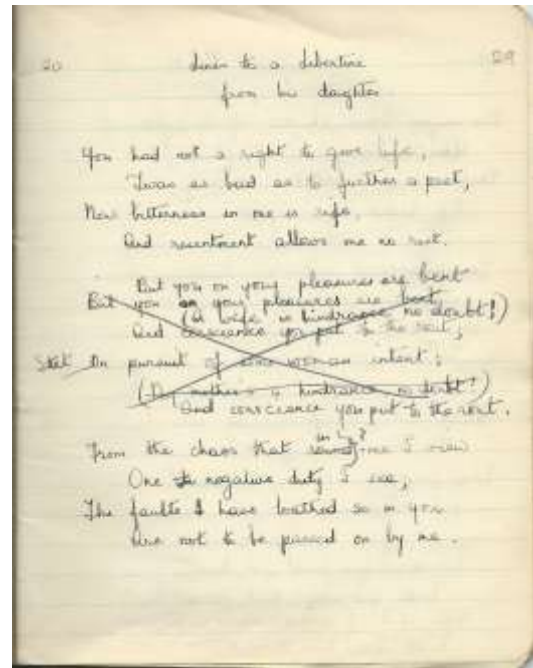 20 29
Lines to a Libertine
from his daughter
You had not a right to give life,
'Twas as bad as to further a pest,
Now bitterness in me is rife,
And resentment allows me no rest.
But you on your pleasures are bent
But you on your pleasures are bent
(A wife is hindrance no doubt!)
And conscience you put to the rout,
Stet In pursuit of some woman intent;
(My mother's a hindrance no doubt!)
And conscience you put to the rout.
From the chaos that in ? me I view
One negative duty I see,
The faults I have loathed so in you
Are not to be passed on by me.